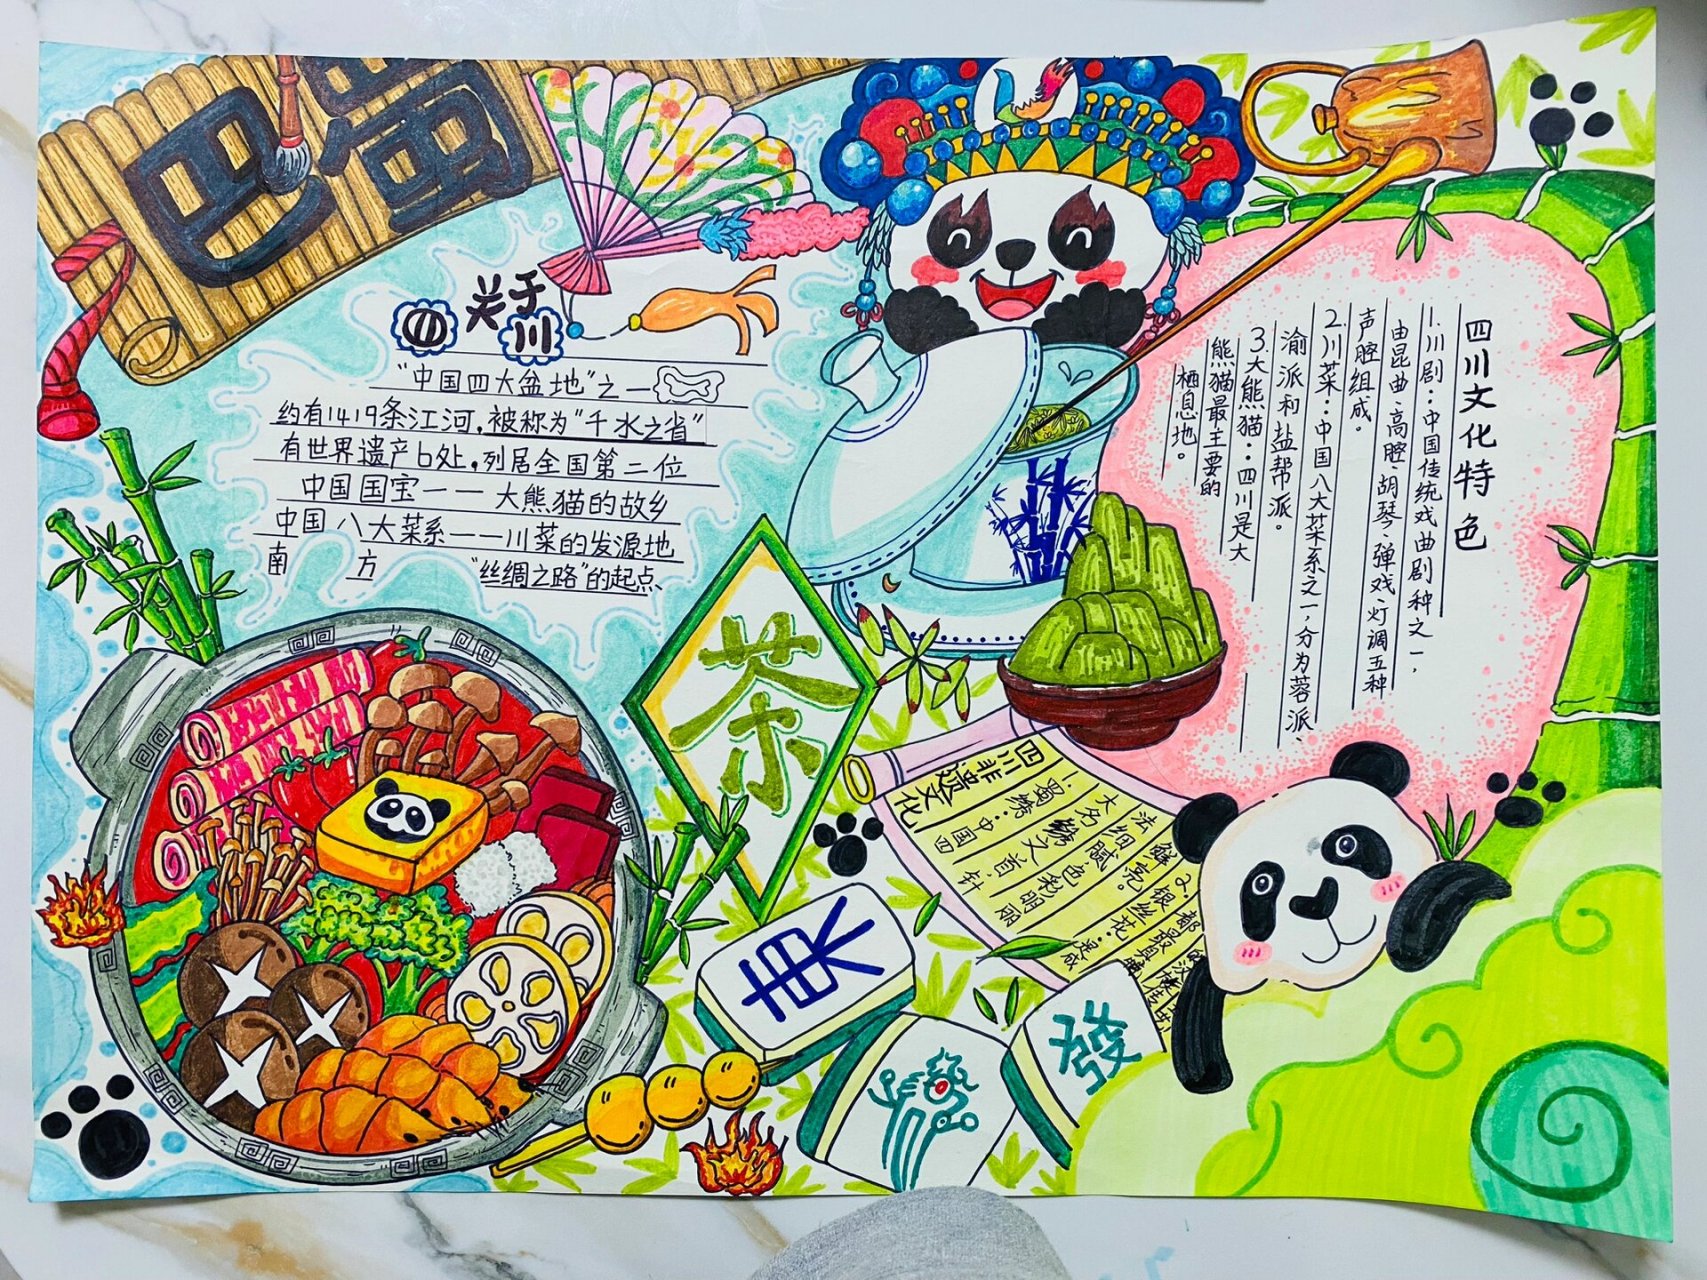 巴蜀
关于
四川
"中国四大盆地"之一
约有1419条江河,被称为"千水之省"
有世界遗产6处,列居全国第二位
中国国宝——大熊猫的故乡
中国八大菜系——川菜的发源地
南方"丝绸之路"的起点
茶
四川文化特色
1.川剧:中国传统戏曲剧种之一,
由昆曲、高腔、胡琴、弹戏、灯调五种
声腔组成。
2.川菜:中国八大菜系之一,分为蓉派、
渝派和盐帮派。
3.大熊猫:四川是大
熊猫最主要的
栖息地。
四川非遗文化
1.蜀绣:中国四
大名绣之首,针
法细腻色彩明丽
鲜亮。
2.银丝花:是成
都最具
東
發